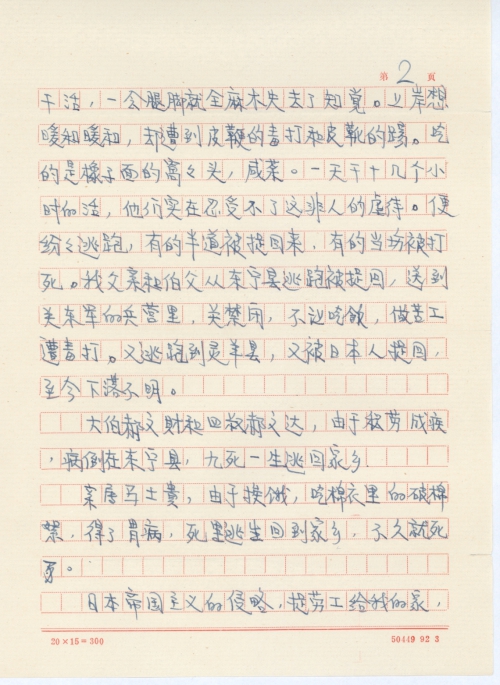 第 2 页
干活，一会腿脚就全麻木失去了知觉。上岸想
暖和暖和，却遭到皮鞭的毒打和皮靴的踢。吃
的是橡子面的窝々头，咸菜。一天干十几个小
时的活，他们实在忍受不了这非人的虐待。便
纷々逃跑，有的半道被捉回来，有的当场被打
死。我父亲和伯父从东宁县逃跑被捉回，送到
关东军的兵营里，关禁闭，不让吃饭，做苦工
遭毒打。又逃跑到灵羊县，又被日本人捉回，
至今下落不明。
大伯郝文财和四叔郝文达，由于积劳成疾
，病倒在东宁县，九死一生逃回家乡.
亲属马士贵，由于挨饿，吃棉衣里的破棉
絮，得了胃病，死里逃生回到家乡，不久就死
了。
日本帝国主义的侵略，捉劳工给我的家，
20×15=300 50449 92 3